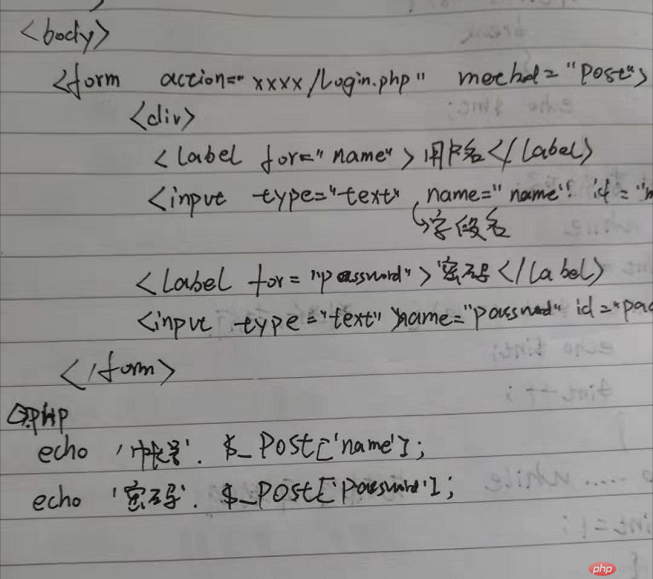 <body>
<form action="xxxx/Login.php" method="Post">
<div>
<label for="name">用户名</label>
<input type="text" name="name" id="n
字段名
<label for="password">密码</label>
<input type="text" name="password" id="pa
</form>
PHP
echo '帐号'. $_POST['name'];
echo '密码'. $_POST['password'];
php